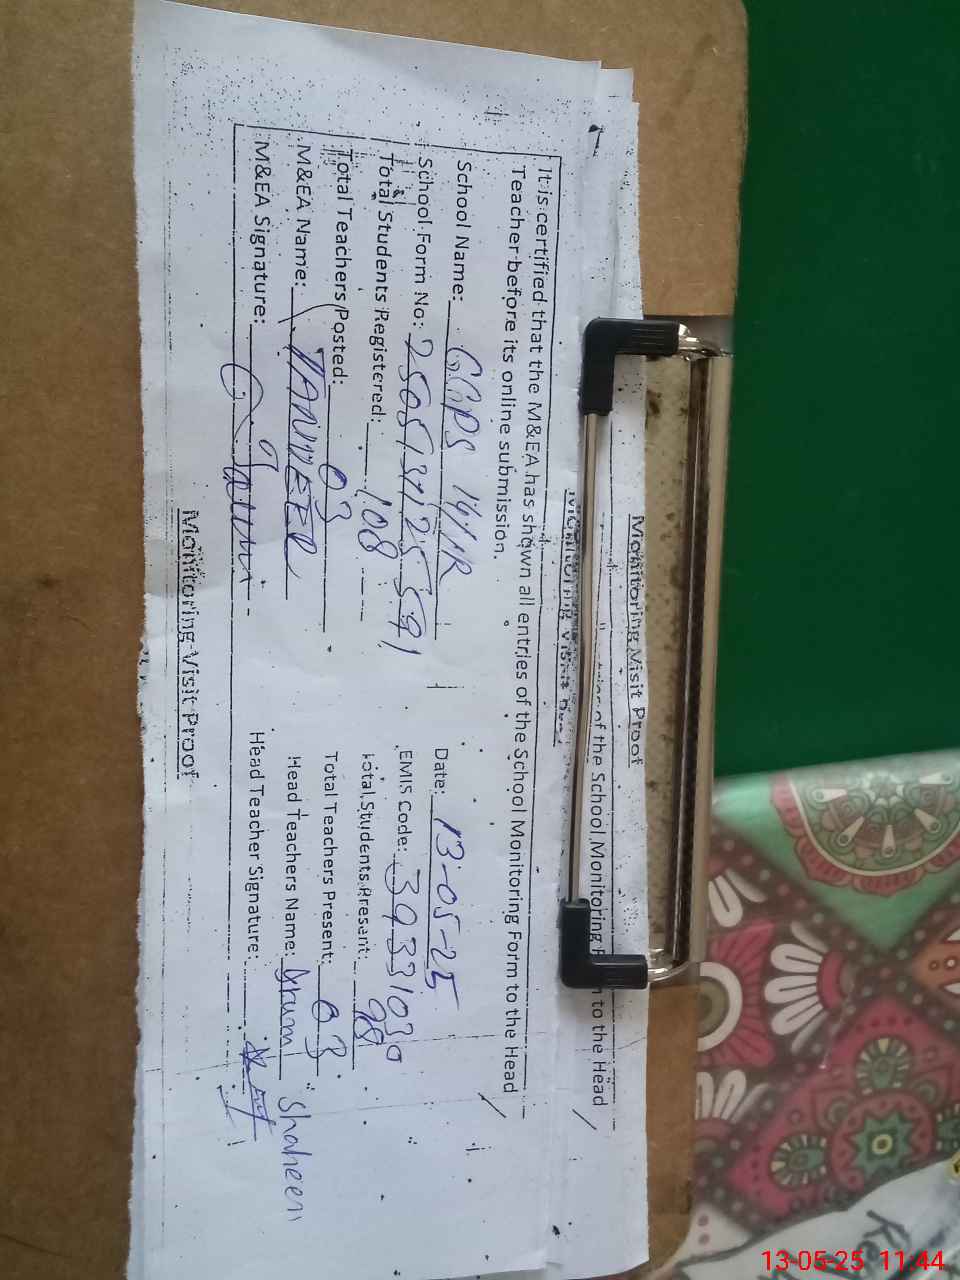 Monitoring Visit Proof
of the School Monitoring
to the Head
It is certified that the M&EA has shown all entries of the School Monitoring Form to the Head
Teacher before its online submission.
School Name: GGPS 14/1R Date: 13-05-25
School Form No: EMIS Code: 39331030
Total Students Registered: 108 Total Students Present: 98
Total Teachers Posted: 03 Total Teachers Present: 03
M&EA Name: TANVEER Head Teachers Name: Shaheen
M&EA Signature: Head Teacher Signature:
Monitoring Visit Proof
13-05-25 11:44